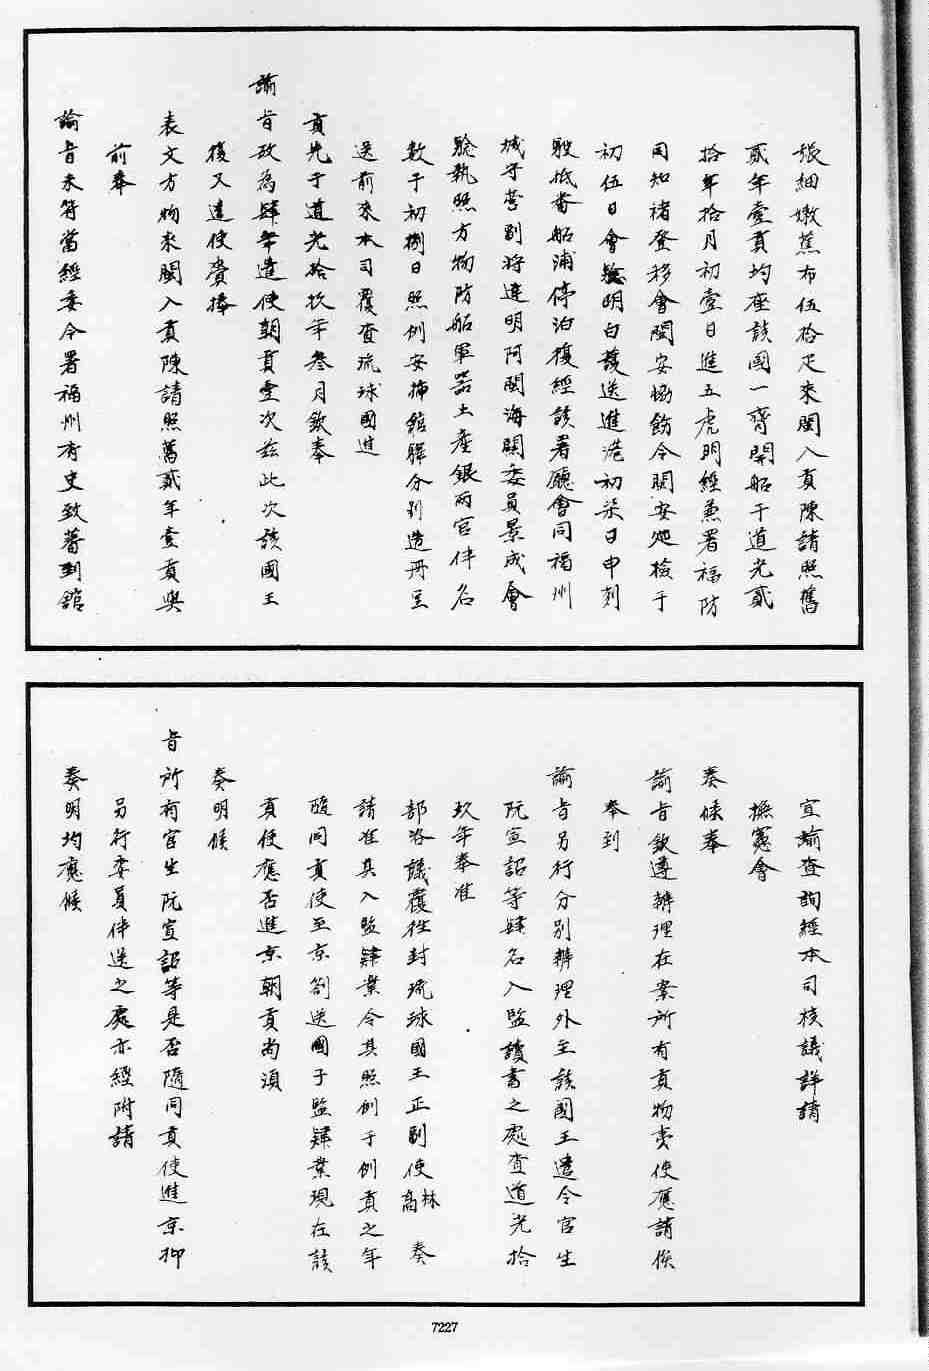 張細嫩蕉布伍拾疋來閩入貢陳請照舊
貳年壹貢均座該國一齊開船于道光貳
拾年拾月初壹日進五虎門經兼署福防
同知褚登移會閩安協飭令閩安廵檢于
初伍日會驗明白護送進港初柒日申刻
駛抵番船浦停泊復經該署廳會同福州
城守營副將達明阿閩海關委員景成會
驗執照方物防船軍器土產銀兩官伴名
數于初捌日照例安揷舘驛分別造冊呈
送前來本司覆查琉球國進
貢先于道光拾玖年叁月欽奉
諭旨改為肆年遣使朝貢壹次茲此次該國王
復又遣使賫捧
表文方物來閩入貢陳請照舊貳年壹貢與
前奉
諭旨未符當經委令署福州府史致蕃到舘
宣諭查詢經本司核議詳請
撫憲會
奏候奉
諭旨欽遵辦理在案所有貢物夷使應請俟
奉到
諭旨另行分別辦理外至該國王遣令官生
阮宣詔等肆名入監讀書之處查道光拾
玖年奉准
部咨議覆徃封琉球國王正副使林高奏
請准其入監肄業令其照例于例貢之年
隨同貢使至京劄送國子監肄業現在該
貢使應否進京朝貢尚須
奏明候
旨所有官生阮宣詔等是否隨同貢使進京抑
另行委員伴送之處亦經附請
奏明均應候
7227